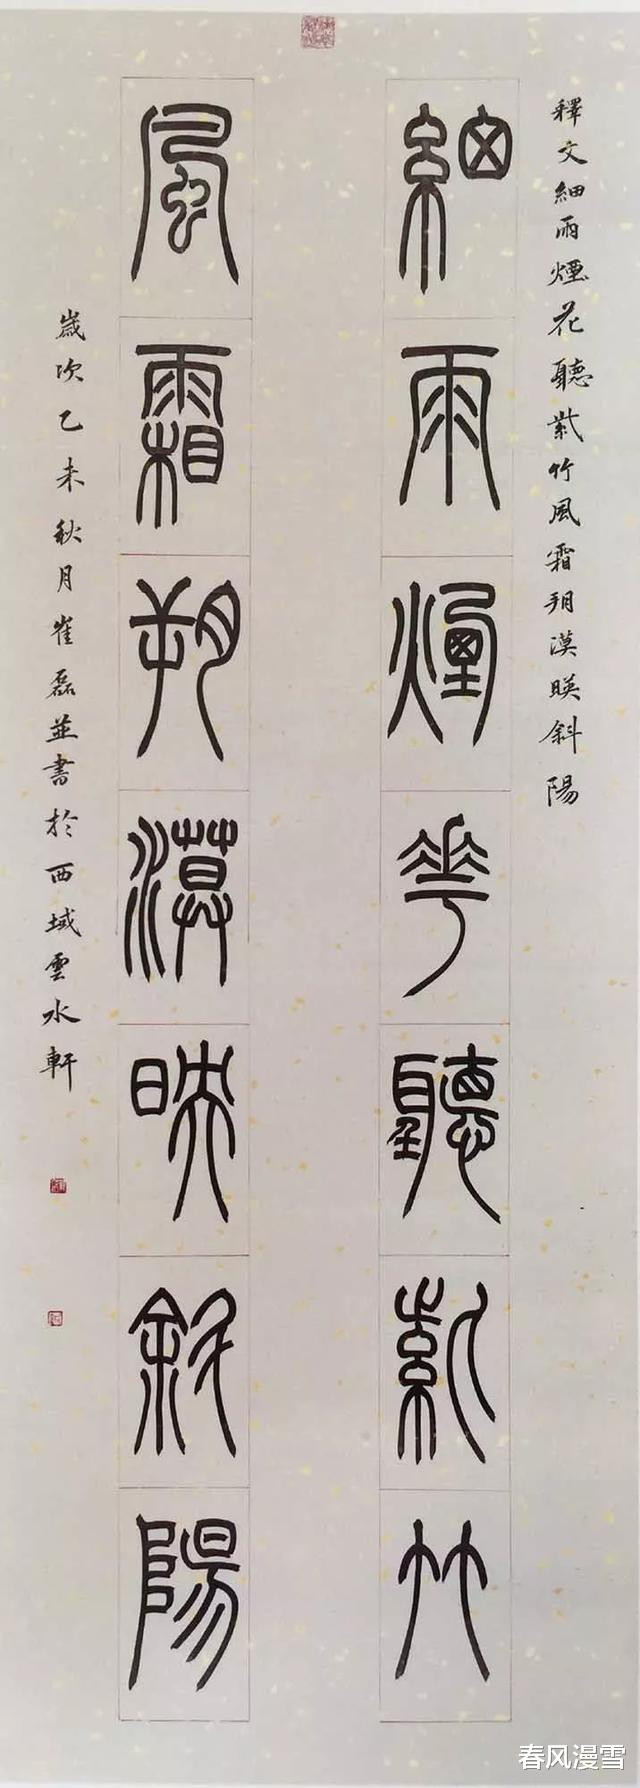 釋文細雨煙花聽紫竹風霜朔漠暎斜陽
細雨煙華聽紫竹
風霜朔漠映斜陽
歲次乙未秋月崔磊並書於西域雲水軒
春风漫雪